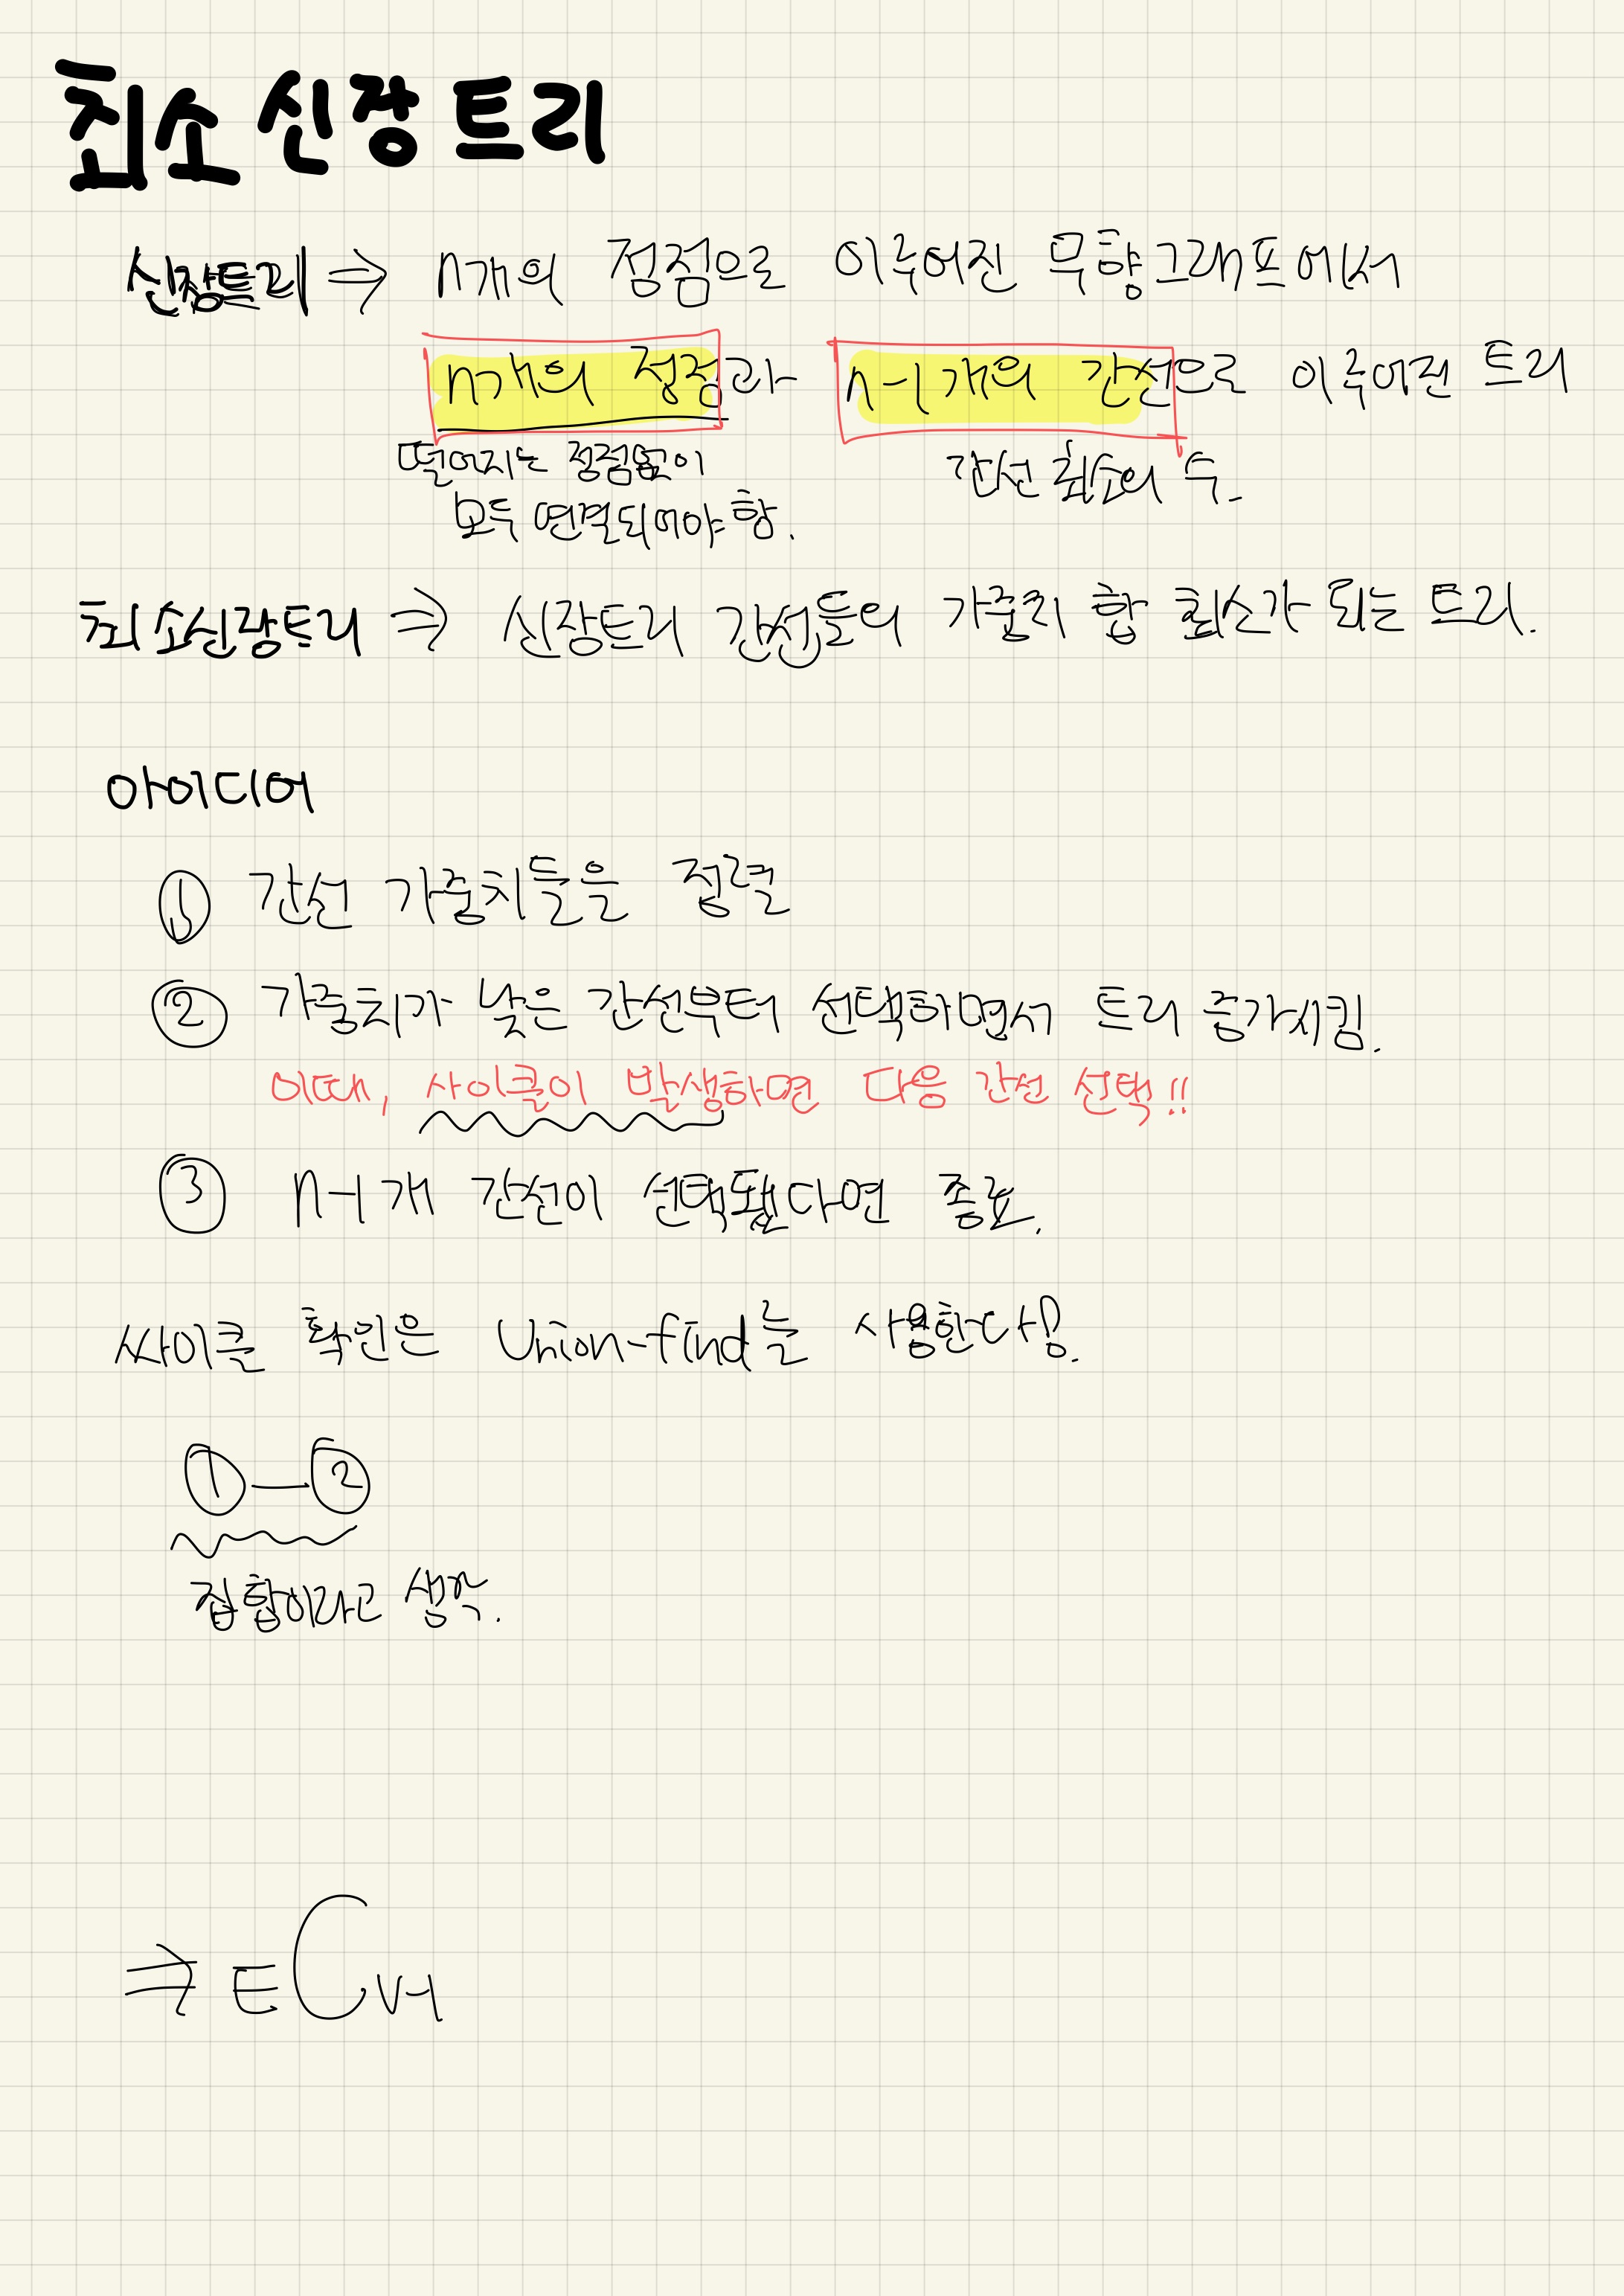 최소 신장 트리
신장트리 ⇒ n개의 정점으로 이루어진 무향그래프에서
n개의 정점과 n-1개의 간선으로 이루어진 트리
떨어지는 정점없이 간선 최소의 수.
모두 연결되어야 함.
최소신장트리 ⇒ 신장트리 간선들의 가중치 합 최소가 되는 트리.
아이디어
① 간선 가중치들을 정렬
② 가중치가 낮은 간선부터 선택하면서 트리 증가시킴.
이때, 사이클이 발생하면 다음 간선 선택!!
③ n-1개 간선이 선택됐다면 종료.
싸이클 확인은 Union-find를 사용한다!.
① — ②
집합이라고 생각.
⇒ E C V-1